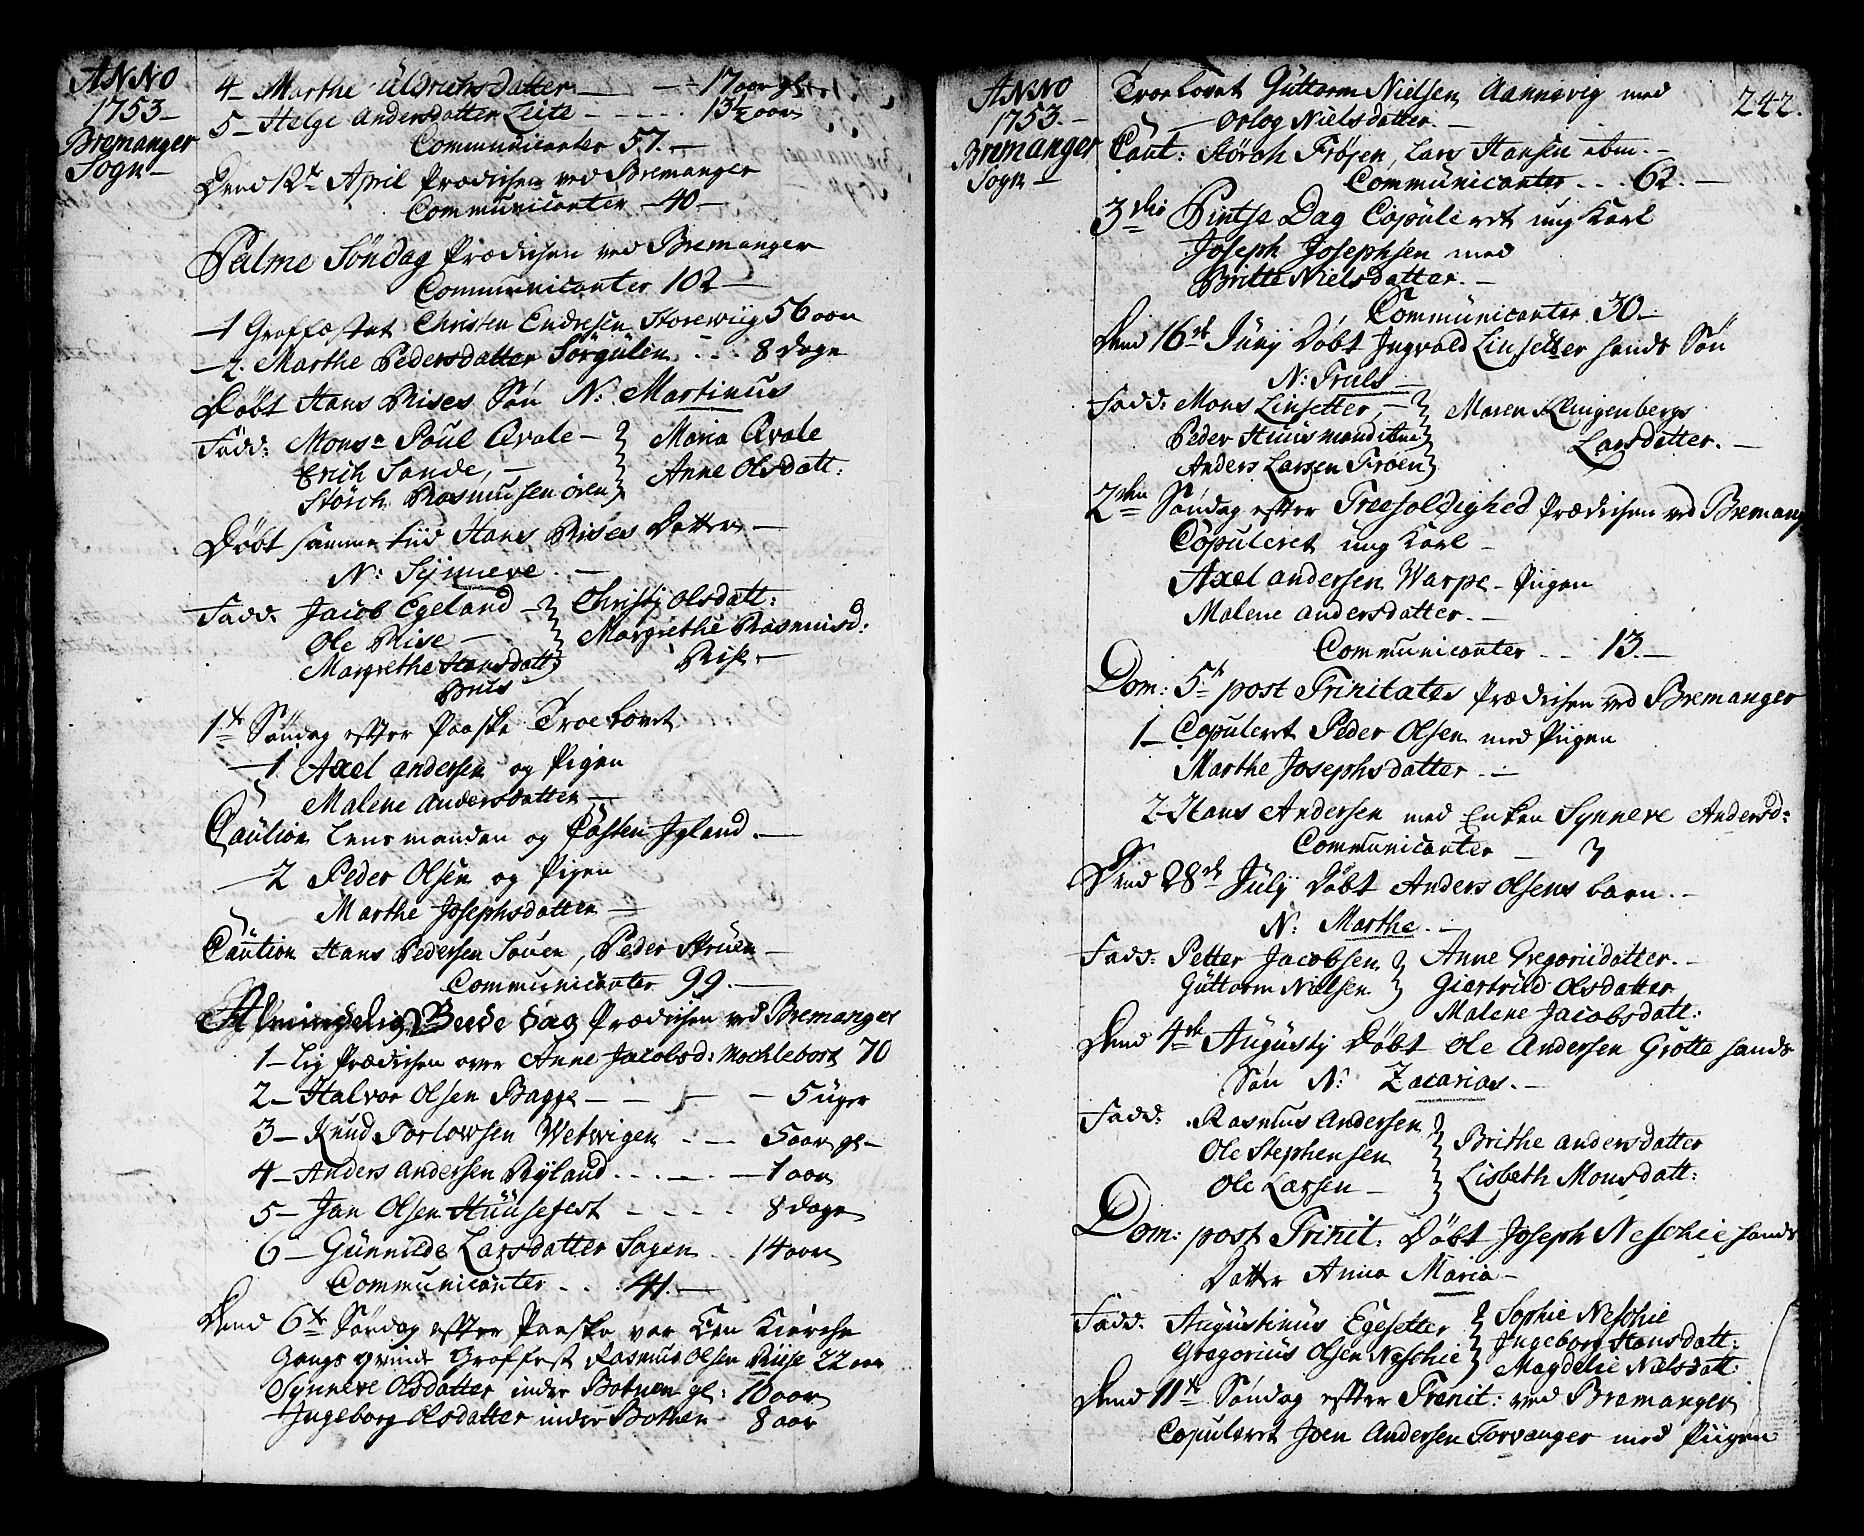 ANNO
1753 –
Bremanger
Sogn –
4 – Marthe Uldrichsdatter – – 17 aar gl:
5 – Helge Andersdatter Leite – – – 13½ aar
Communicanter 57. –
Dend 12te April Prædichen ved Bremanger
Communicanter – 40 –
Palme Søndag Prædichen ved Bremanger
Communicanter 102 –
– 1 Graffæstet Christen Endresen Storewiig 56 aar
– 2. Marthe Pedersdatter Sørgulen – – 8 dage
Døbt Hans Rises Søn N: Martinus
Fadd: Monsr Poul Qvale – Maria Qvale
Erich Sande, – Anne Olsdatt:
Störch Rasmussen ören
Døbt samme tiid Hans Rises Datter –
N: Synneve. –
Fadd: Jacob Egeland – Christj Olsdatt:
Ole Rise – Margrethe Rasmusd:
Margrethe Hansdatt: Rise –
Riis
1te Søndag efter Paaske Troelovet
– 1 Axel andersen og Pigen
Malene andersdatter –
Caution Lensmanden og Carsten Igland. –
– 2 Peder Olsen og Pigen
Marthe Josephsdatter –
Caution Hans Pedersen, Peder –
Communicanter 99. –
Almindelig Beede dag Prædichen ved Bremanger
1 – Lig Prædichen over Anne Jacobsd: Mochlebost 70
2 – Halvor Olsen Bagge – – – – 5 uger
3 – Knud Torlowsen Wetwigen – – – 5 aar gl –
4 – Anders Andersen Ryland . – . – – 1 aar
5 – Jan Olsen Huusefest – – – – 8 dage
6 – Gunnilde Larsdatter Sagen – 14 aar
Communicanter . . 41. –
Dend 6te Søndag efter Paaske var Kierche
Gangs Graffest Rasmus Olsen Riise 22 aar
Synneve Olsdatter indre Botnen gl: 10 aar
Ingeborg Olsdatter indre Botnen – 8 aar
ANNO
1753. –
Bremanger
Sogn –
242.
Troelovet Guttorm Nielsen Aannevig med
– Orlog Nielsdatter. –
Caut: Störch Frøjen, Lars Hansen ibm. –
Communicanter . . . 62. –
3die Pintse Dag Copuleret ung Karl
Joseph Josephsen med
Britte Nielsdatter. –
Communicanter 30. –
Dend 16de Junij Døbt Ingvald Linsetter hands Søn
N: Truls –
Fadd: Mons Linsetter, – Maren Klingenbergs
Peder Huusmand ibm Larsdatter. –
Anders Larsen Frøen
2den Søndag efter Treefoldighed Prædichen ved Bremang
Copuleret ung Karl –
Axel andersen Warpe – Piigen
Malene andersdatter. –
Communicanter . . 13. –
Dom: 5te post Trinitates Prædichen ved Bremanger
1 – Copuleret Peder Olsen med Piigen
Marthe Josephsdatter . –
2 – Hans Andersen med Enken Synneve Andersd:
Communicanter – 7
Dend 28de Julij Døbt Anders Olsens barn. –
N: Marthe. –
Fadd: Petter Jacobsen Anne Gregoriidatter. –
Guttorm Nielsen Giertruid Olsdatter
Malene Jacobsdatt:
Dend 4de Augustj Døbt Ole Andersen Grotte hands
Søn N: Zacarias. –
Fadd: Rasmus Andersen Brithe andersdatter
Ole Stephensen Lisbeth Monsdatt:
Ole Larsen –
Dom: post Trinit: Døbt Joseph Neschie hands
Datter Anna Maria –
Fadd: Augustinus Egesetter Sophie Neschie
Gregorius Olsen Neschie Ingeborg Hansdatt:
Magdelie Nielsdat:
Dend 11te Søndag efter Trenit: ved Bremanger
Copuleret Joen Andersen Torvanger med Piigen